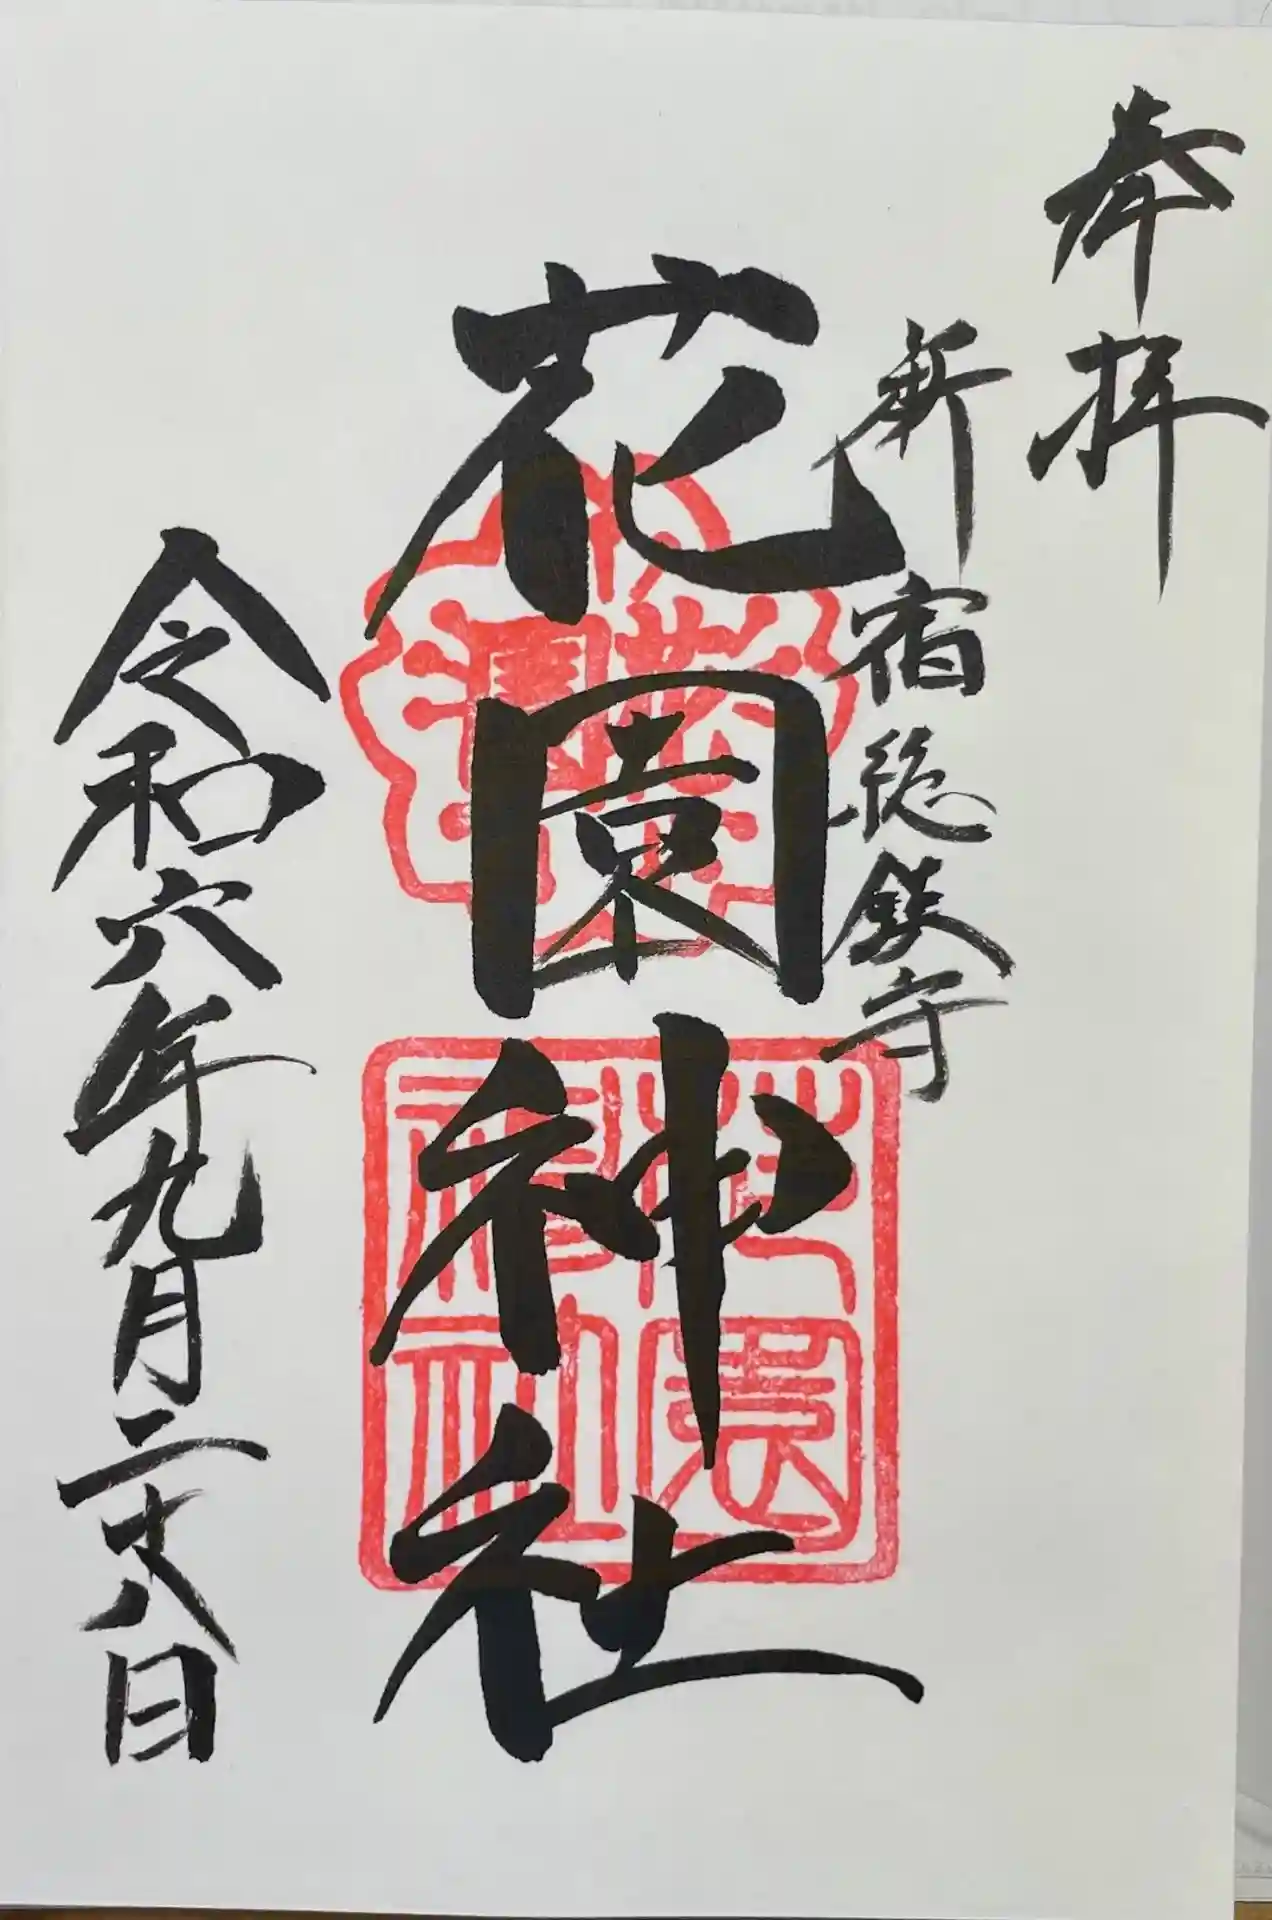 奉拝
新宿総鎮守
花園神社
令和六年九月二十八日
花園神社